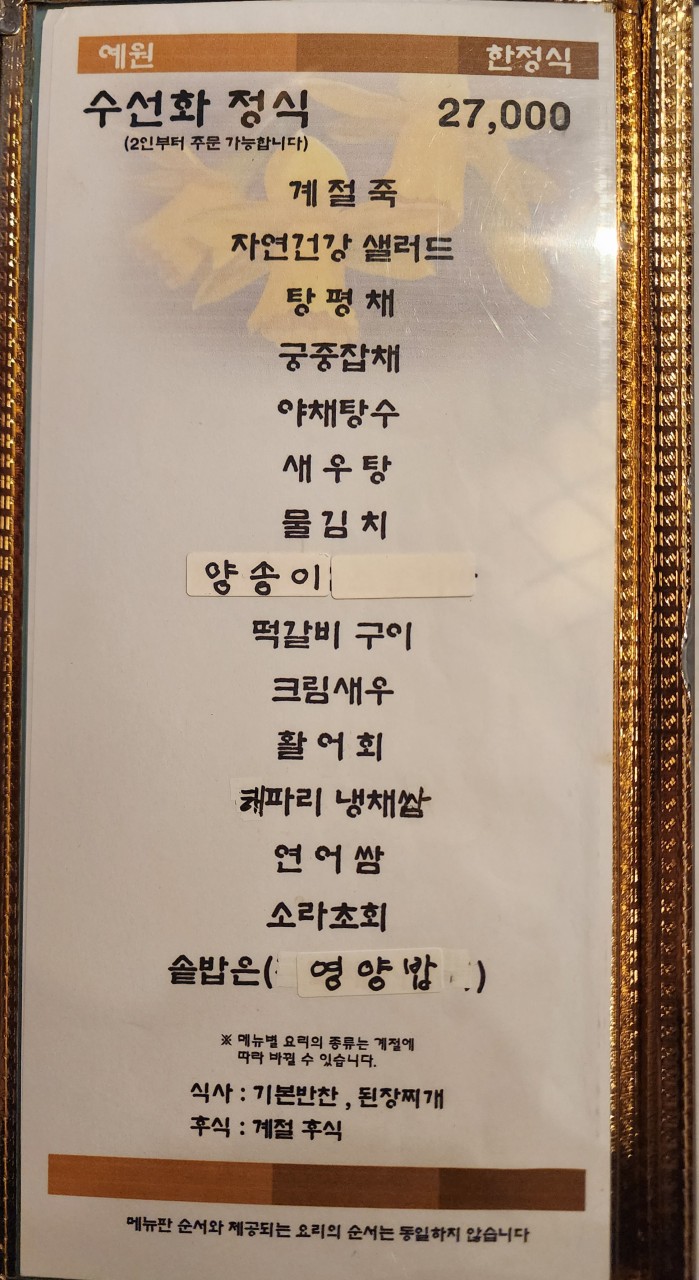 예원 한정식
수선화 정식 27,000
(2인부터 주문 가능합니다)
계절죽
자연건강 샐러드
탕평채
궁중잡채
야채탕수
새우탕
물김치
양송이
떡갈비 구이
크림새우
활어회
해파리 냉채쌈
연어쌈
소라초회
솥밥은( 영양밥 )
※ 메뉴별 요리의 종류는 계절에
따라 바뀔 수 있습니다.
식사 : 기본반찬 , 된장찌개
후식 : 계절 후식
메뉴판 순서와 제공되는 요리의 순서는 동일하지 않습니다